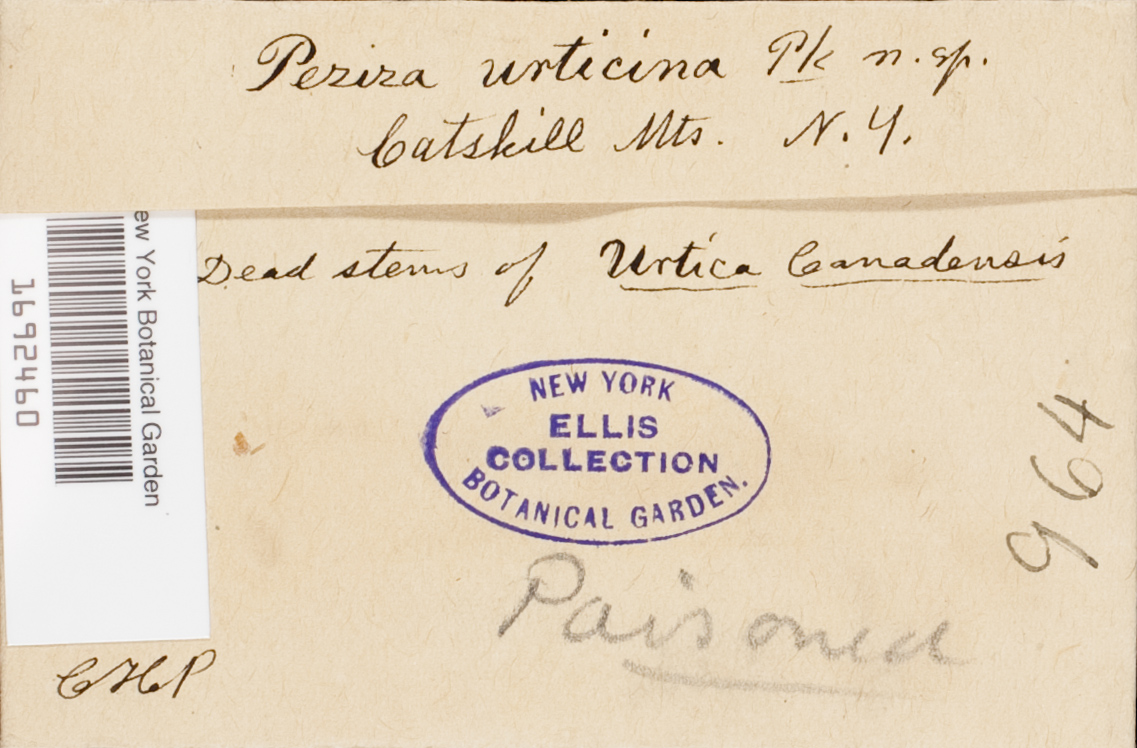 Peziza urticina Pk n.sp.
Catskill Mts. N.Y.
Dead stems of Urtica Canadensis
ew York Botanical Garden
1692460
NEW YORK
ELLIS
COLLECTION
BOTANICAL GARDEN.
964
Poisoned
CHP